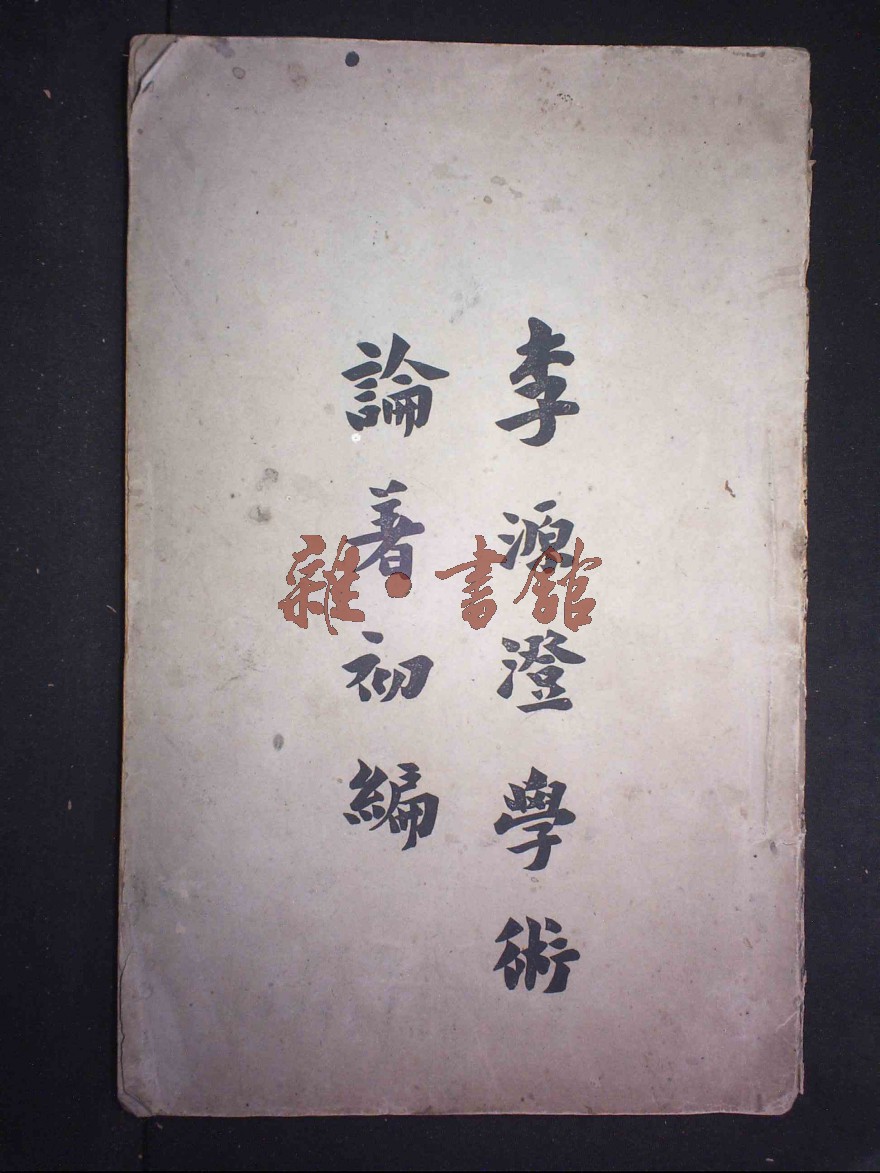 李源澄學術
論著初編
雜·書館